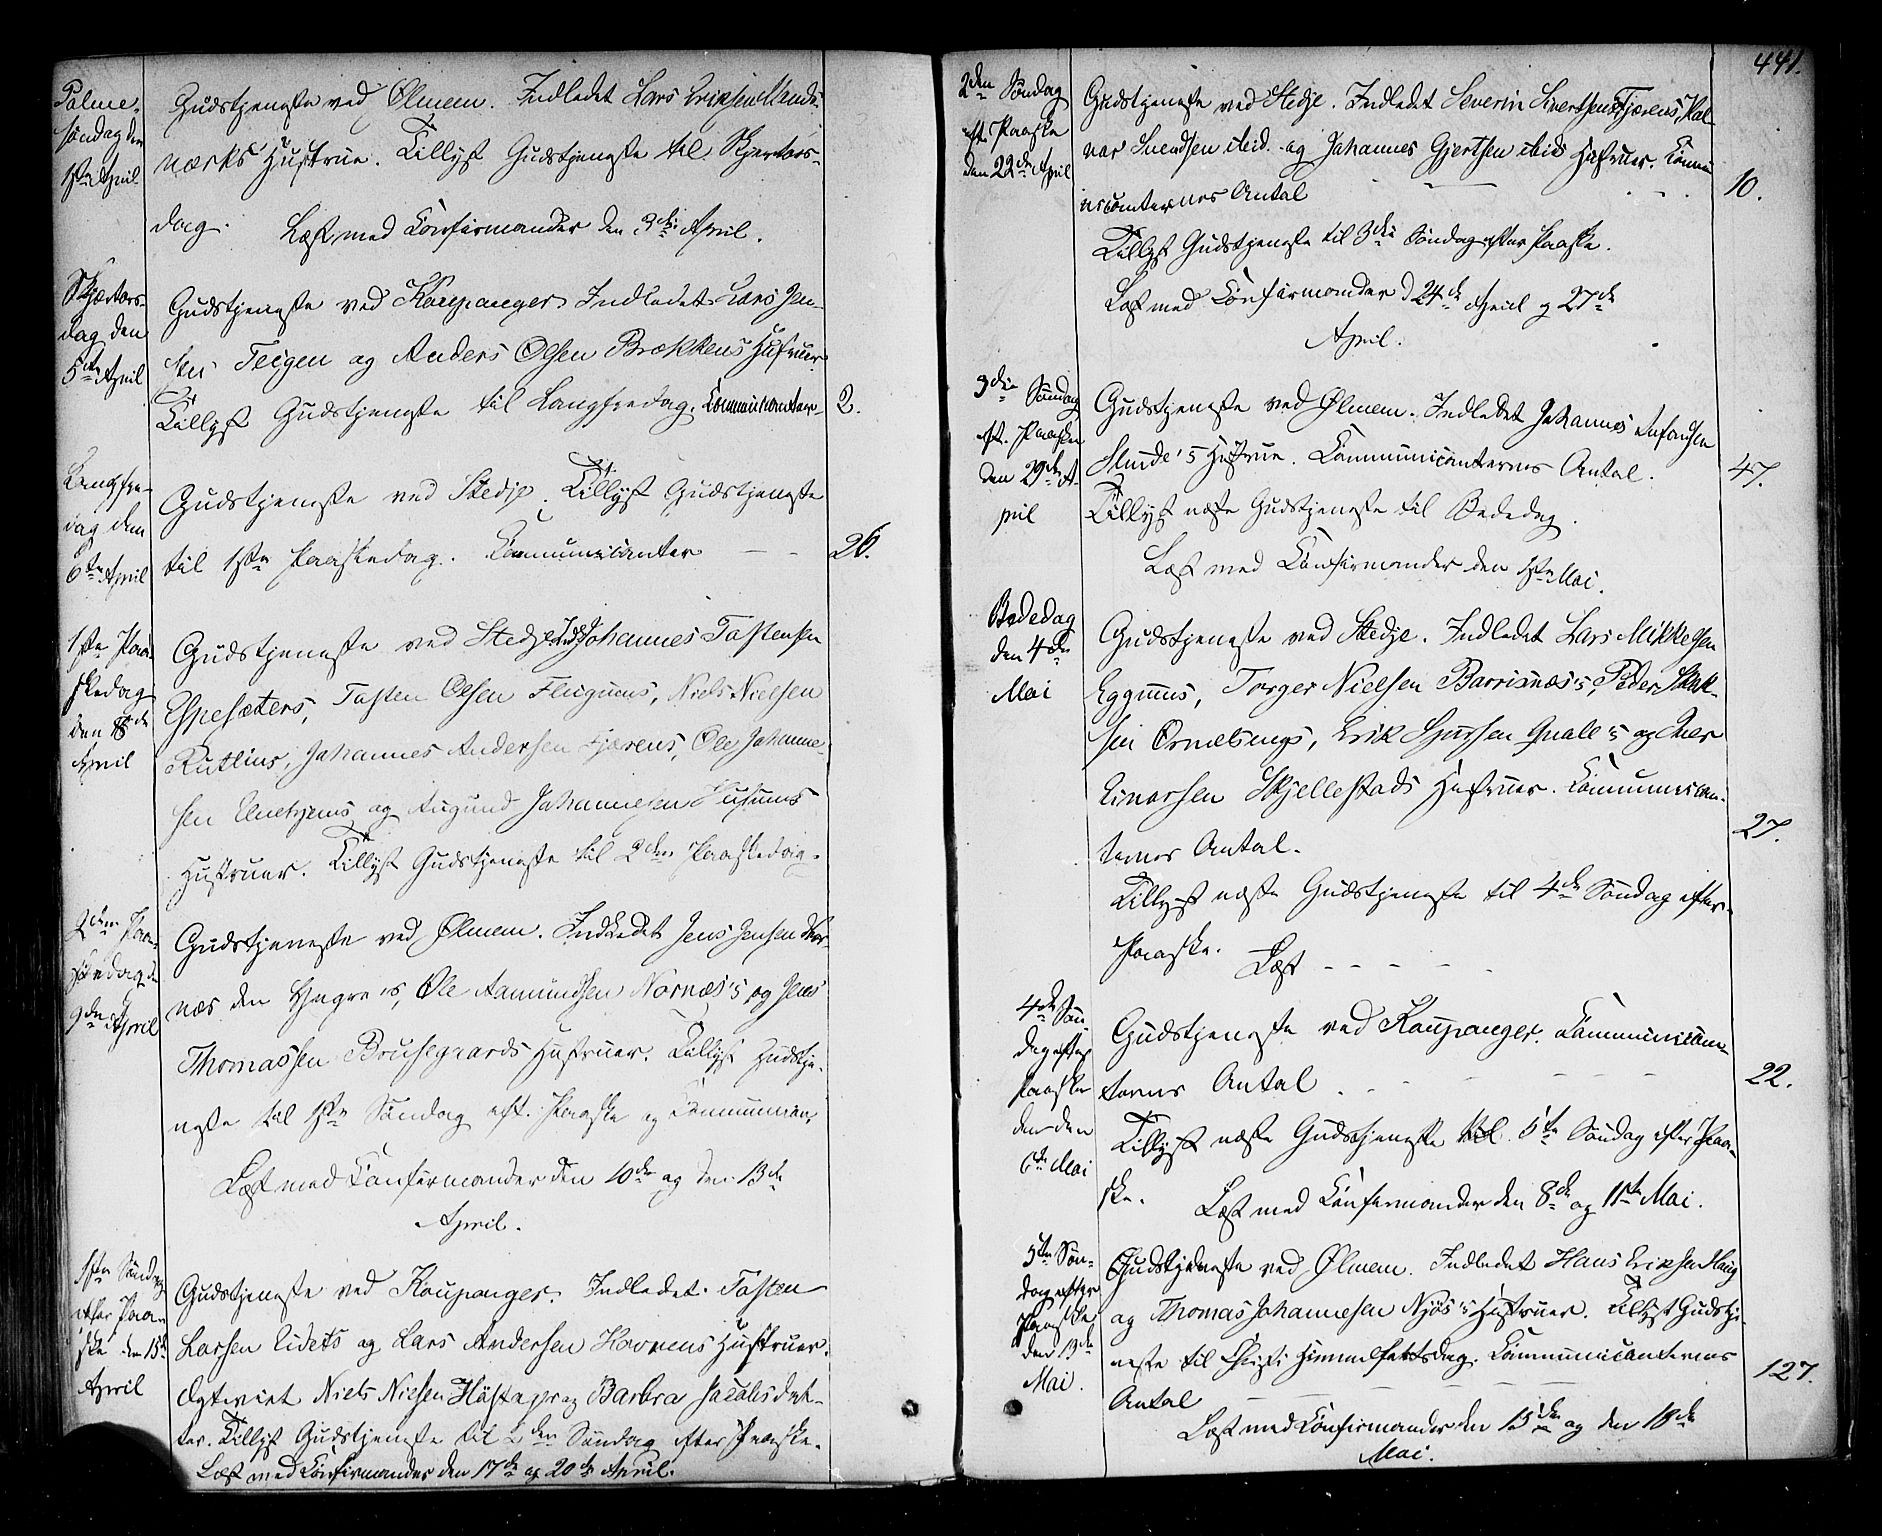 Palme-
søndag den
1ste April
Gudstjeneste ved Ølmem. Indledet Lars Eriksen
værks Hustrue. Tillyst Gudstjeneste til Skjertors-
dag. Læst med Confirmander den 3die April.
Skjærtors-
dag den
5te April
Gudstjeneste ved Kaupanger. Indledet Lars Jen-
sen Teigen og Anders Olsen Brækkens Hustruer
Tillyst Gudstjeneste til Langfredag. Communicanter
2.
Langfre-
dag den
6te April
Gudstjeneste ved Stedje. Tillyst Gudstjeneste
til 1ste Paaskedag. Communicanter
26.
1ste Paa-
skedag
den 8de
April
Gudstjeneste ved Stedje Indl. Johannes Tostensen
Espesæters, Tosten Olsen Flugums, Niels Nielsen
Rutlins, Johannes Andersen Fjærens, Ole Johanne-
sen og Augund Johannesen Husums
Hustruer. Tillyst Gudstjeneste til 2den Paaskedag.
2den Paa-
skedag d.
9de April
Gudstjeneste ved Ølmem. Indledet Jens Jensen Nor-
næs den Yngre's, Ole Aamundsen Nornæs's og Jens
Thomassen Brusegaards Hustruer. Tillyst Gudstje-
neste til 1ste Søndag eft. Paaske og Communion.
Læst med Confirmander den 10de og den 13de
April.
1ste Søndag
efter Paa-
ske den 15de
April
Gudstjeneste ved Kaupanger. Indledet Tosten
Larsen Eidets og Lars Andersen Hovnens Hustruer.
Ægteviet Niels Nielsen og Barbra Jacobsdat-
ter. Tillyst Gudstjeneste til 2den Søndag efter Paaske.
Læst med Confirmander den 17de og 20de April.
441.
2den Søndag
eft. Paaske
den 22de April
Gudstjeneste ved Stedje. Indledet Severin Sivertsen Fjærens,
Svendsen ibid. og Johannes Gjertsen ibid Hustruer. Commu-
nicanternes Antal
10.
Tillyst Gudstjeneste til 3die Søndag efter Paaske.
Læst med Confirmander d 24de April og 27de
April.
3die Søndag
eft. Paaske
den 29de A-
pril
Gudstjeneste ved Ølmem. Indledet Johannes
Slinde's Hustrue. Communicanternes Antal.
47.
Tillyst næste Gudstjeneste til Bededag.
Læst med Confirmander den 1ste Mai.
Bededag
den 4de
Mai
Gudstjeneste ved Stedje. Indledet Lars Mikkelsen
Eggums, Torger Nielsen Barsnæs's, Peder
sen Ornelsengs, Erik Sjursen Qvale's og Iver
Einarsen Skjellestads Hustruer. Communican-
ternes Antal.
27.
Tillyst næste Gudstjeneste til 4de Søndag efter
Paaske. Læst - - - - -
4de Søn-
dag efter
Paaske
den den
6te Mai
Gudstjeneste ved Kaupanger. Communican-
ternes Antal
22.
Tillyst næste Gudstjeneste til 5te Søndag efter Paa-
ske. Læst med Confirmander den 8de og 11te Mai.
5te Søn-
dag efter
Paaske
den 13de
Mai.
Gudstjeneste ved Ølmem. Indledet Hans Eriksen Haug
og Thomas Johannesen Njøs's Hustruer. Tillyst Gudstje-
neste til Christi Himmelfartsdag. Communicanternes
Antal
127.
Læst med Confirmander den 15de og den 18de
Mai.